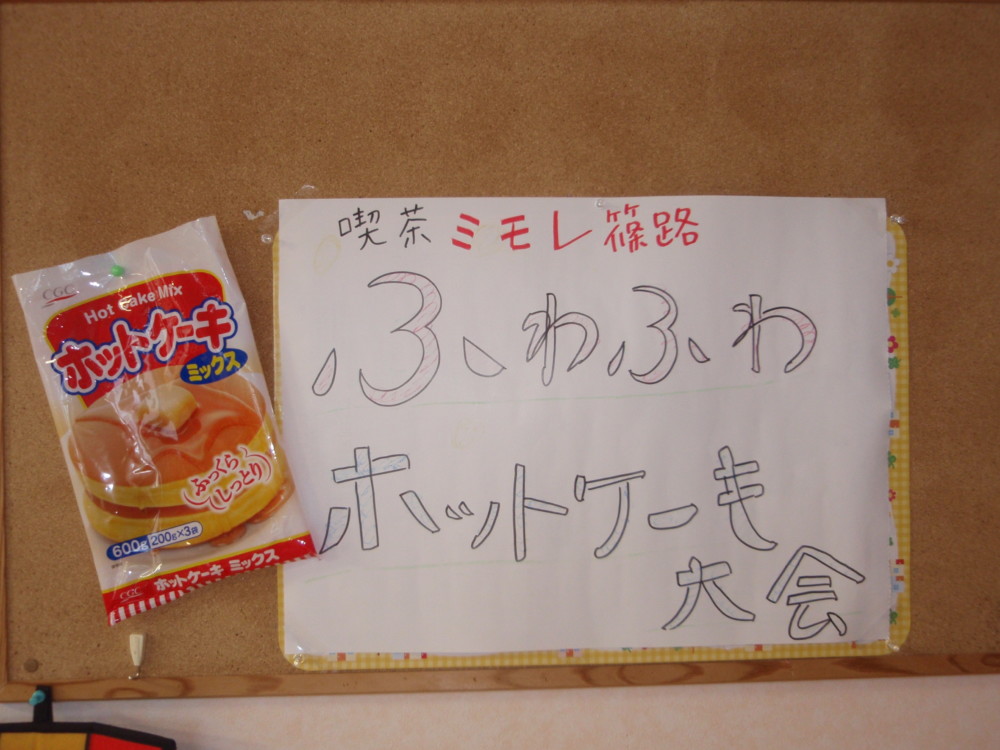 喫茶ミモレ篠路
ふわふわ
ホットケーキ
大会
CGC
Hot Cake Mix
ホットケーキ
ミックス
ふっくら
しっとり
600g 200g×3袋
CGC ホットケーキ ミックス